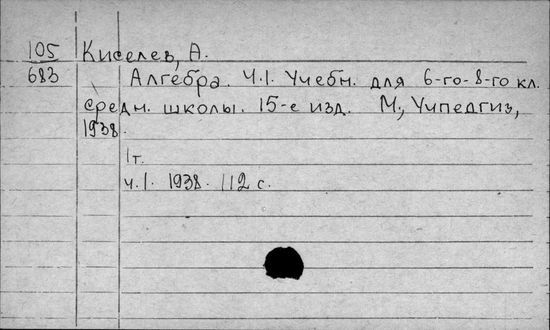 105 Киселев, А.
683 Алгебра. Ч.1. Учебн. для 6-го-8-го кл.
средн. школы. 15-е изд. М., Учпедгиз,
1938.
1т.
ч.1. 1938. 112 с.